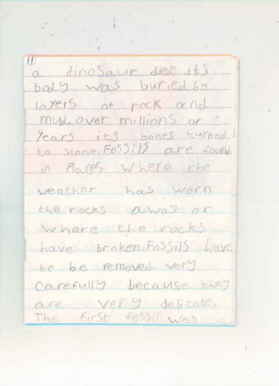 11
a dinosaur died its
body was buried in
layers of rock and
mud. over millions of
years its bones turned
to stone. Fossils are found
in places where the
weather has worn
the rocks away or
where the rocks
have broken. Fossils have
to be removed very
carefully because they
are very delicate.
The first fossil was